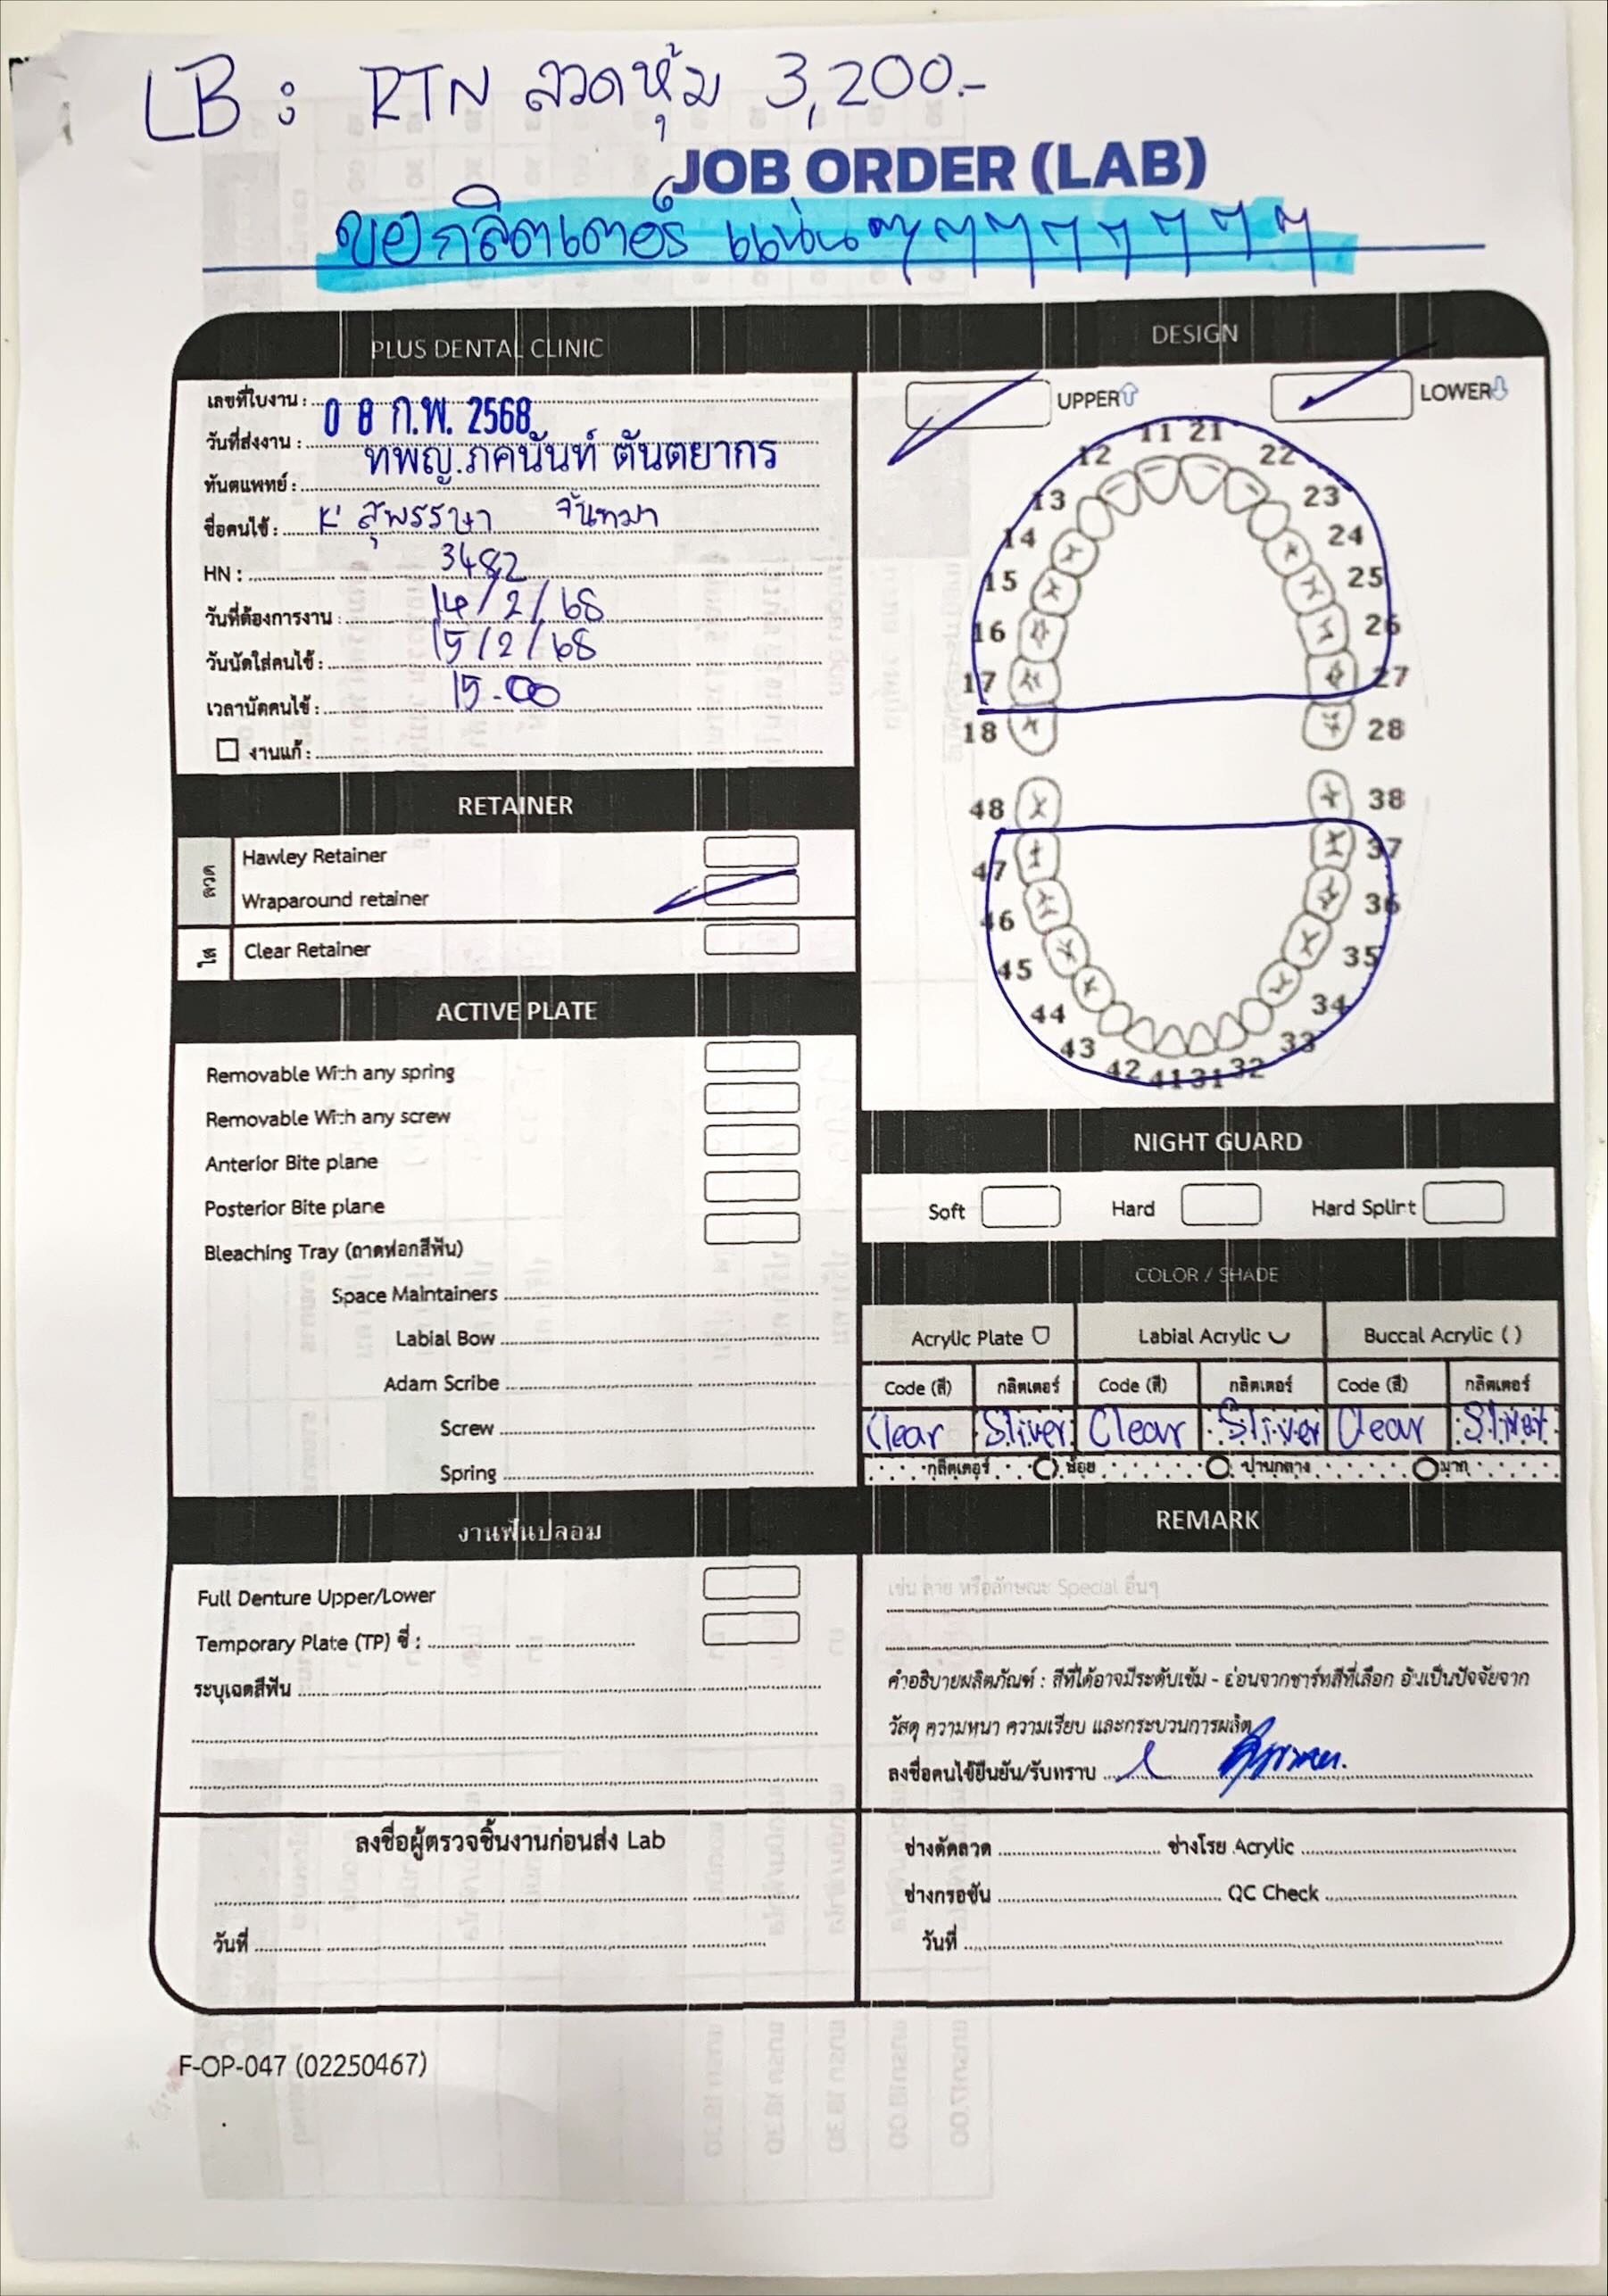 LB : RTN ลวดหุ้ม 3,200.-
JOB ORDER (LAB)
ขอกลิตเตอร์ แน่นๆ ๆ ๆ ๆ ๆ ๆ ๆ ๆ
PLUS DENTAL CLINIC
เลขที่ใบงาน :
วันที่ส่งงาน : 0 8 ก.พ. 2568
ทันตแพทย์ : ทพญ.ภคนันท์ ตันตยากร
ชื่อคนไข้ : K' สุพรรษา จันทมา
HN : 3482
วันที่ต้องการงาน : 14/2/68
วันนัดใส่คนไข้ : 15/2/68
เวลานัดคนไข้ : 15-00
งานแก้ :
RETAINER
ลวด
Hawley Retainer
Wraparound retainer
ใส
Clear Retainer
ACTIVE PLATE
Removable With any spring
Removable With any screw
Anterior Bite plane
Posterior Bite plane
Bleaching Tray (ถาดฟอกสีฟัน)
Space Maintainers
Labial Bow
Adam Scribe
Screw
Spring
งานฟันปลอม
Full Denture Upper/Lower
Temporary Plate (TP) ซี่ :
ระบุเฉดสีฟัน
ลงชื่อผู้ตรวจชิ้นงานก่อนส่ง Lab
วันที่
DESIGN
UPPER LOWER
11 21
12 22
13 23
14 24
15 25
16 26
17 27
18 28
48 38
47 37
46 36
45 35
44 34
43 33
42 41 31 32
NIGHT GUARD
Soft Hard Hard Splint
COLOR / SHADE
Acrylic Plate Labial Acrylic Buccal Acrylic ( )
Code (สี) กลิตเตอร์ Code (สี) กลิตเตอร์ Code (สี) กลิตเตอร์
Clear Sliver Clear Sliver Clear Sliver
กลิตเตอร์ น้อย ปานกลาง มาก
REMARK
เช่น ลาย หรือลักษณะ Special อื่นๆ
คำอธิบายผลิตภัณฑ์ : สีที่ได้อาจมีระดับเข้ม - อ่อนจากชาร์ทสีที่เลือก อันเป็นปัจจัยจาก
วัสดุ ความหนา ความเรียบ และกระบวนการผลิต
ลงชื่อคนไข้ยืนยัน/รับทราบ
ช่างดัดลวด ช่างโรย Acrylic
ช่างกรอขัน QC Check
วันที่
F-OP-047 (02250467)